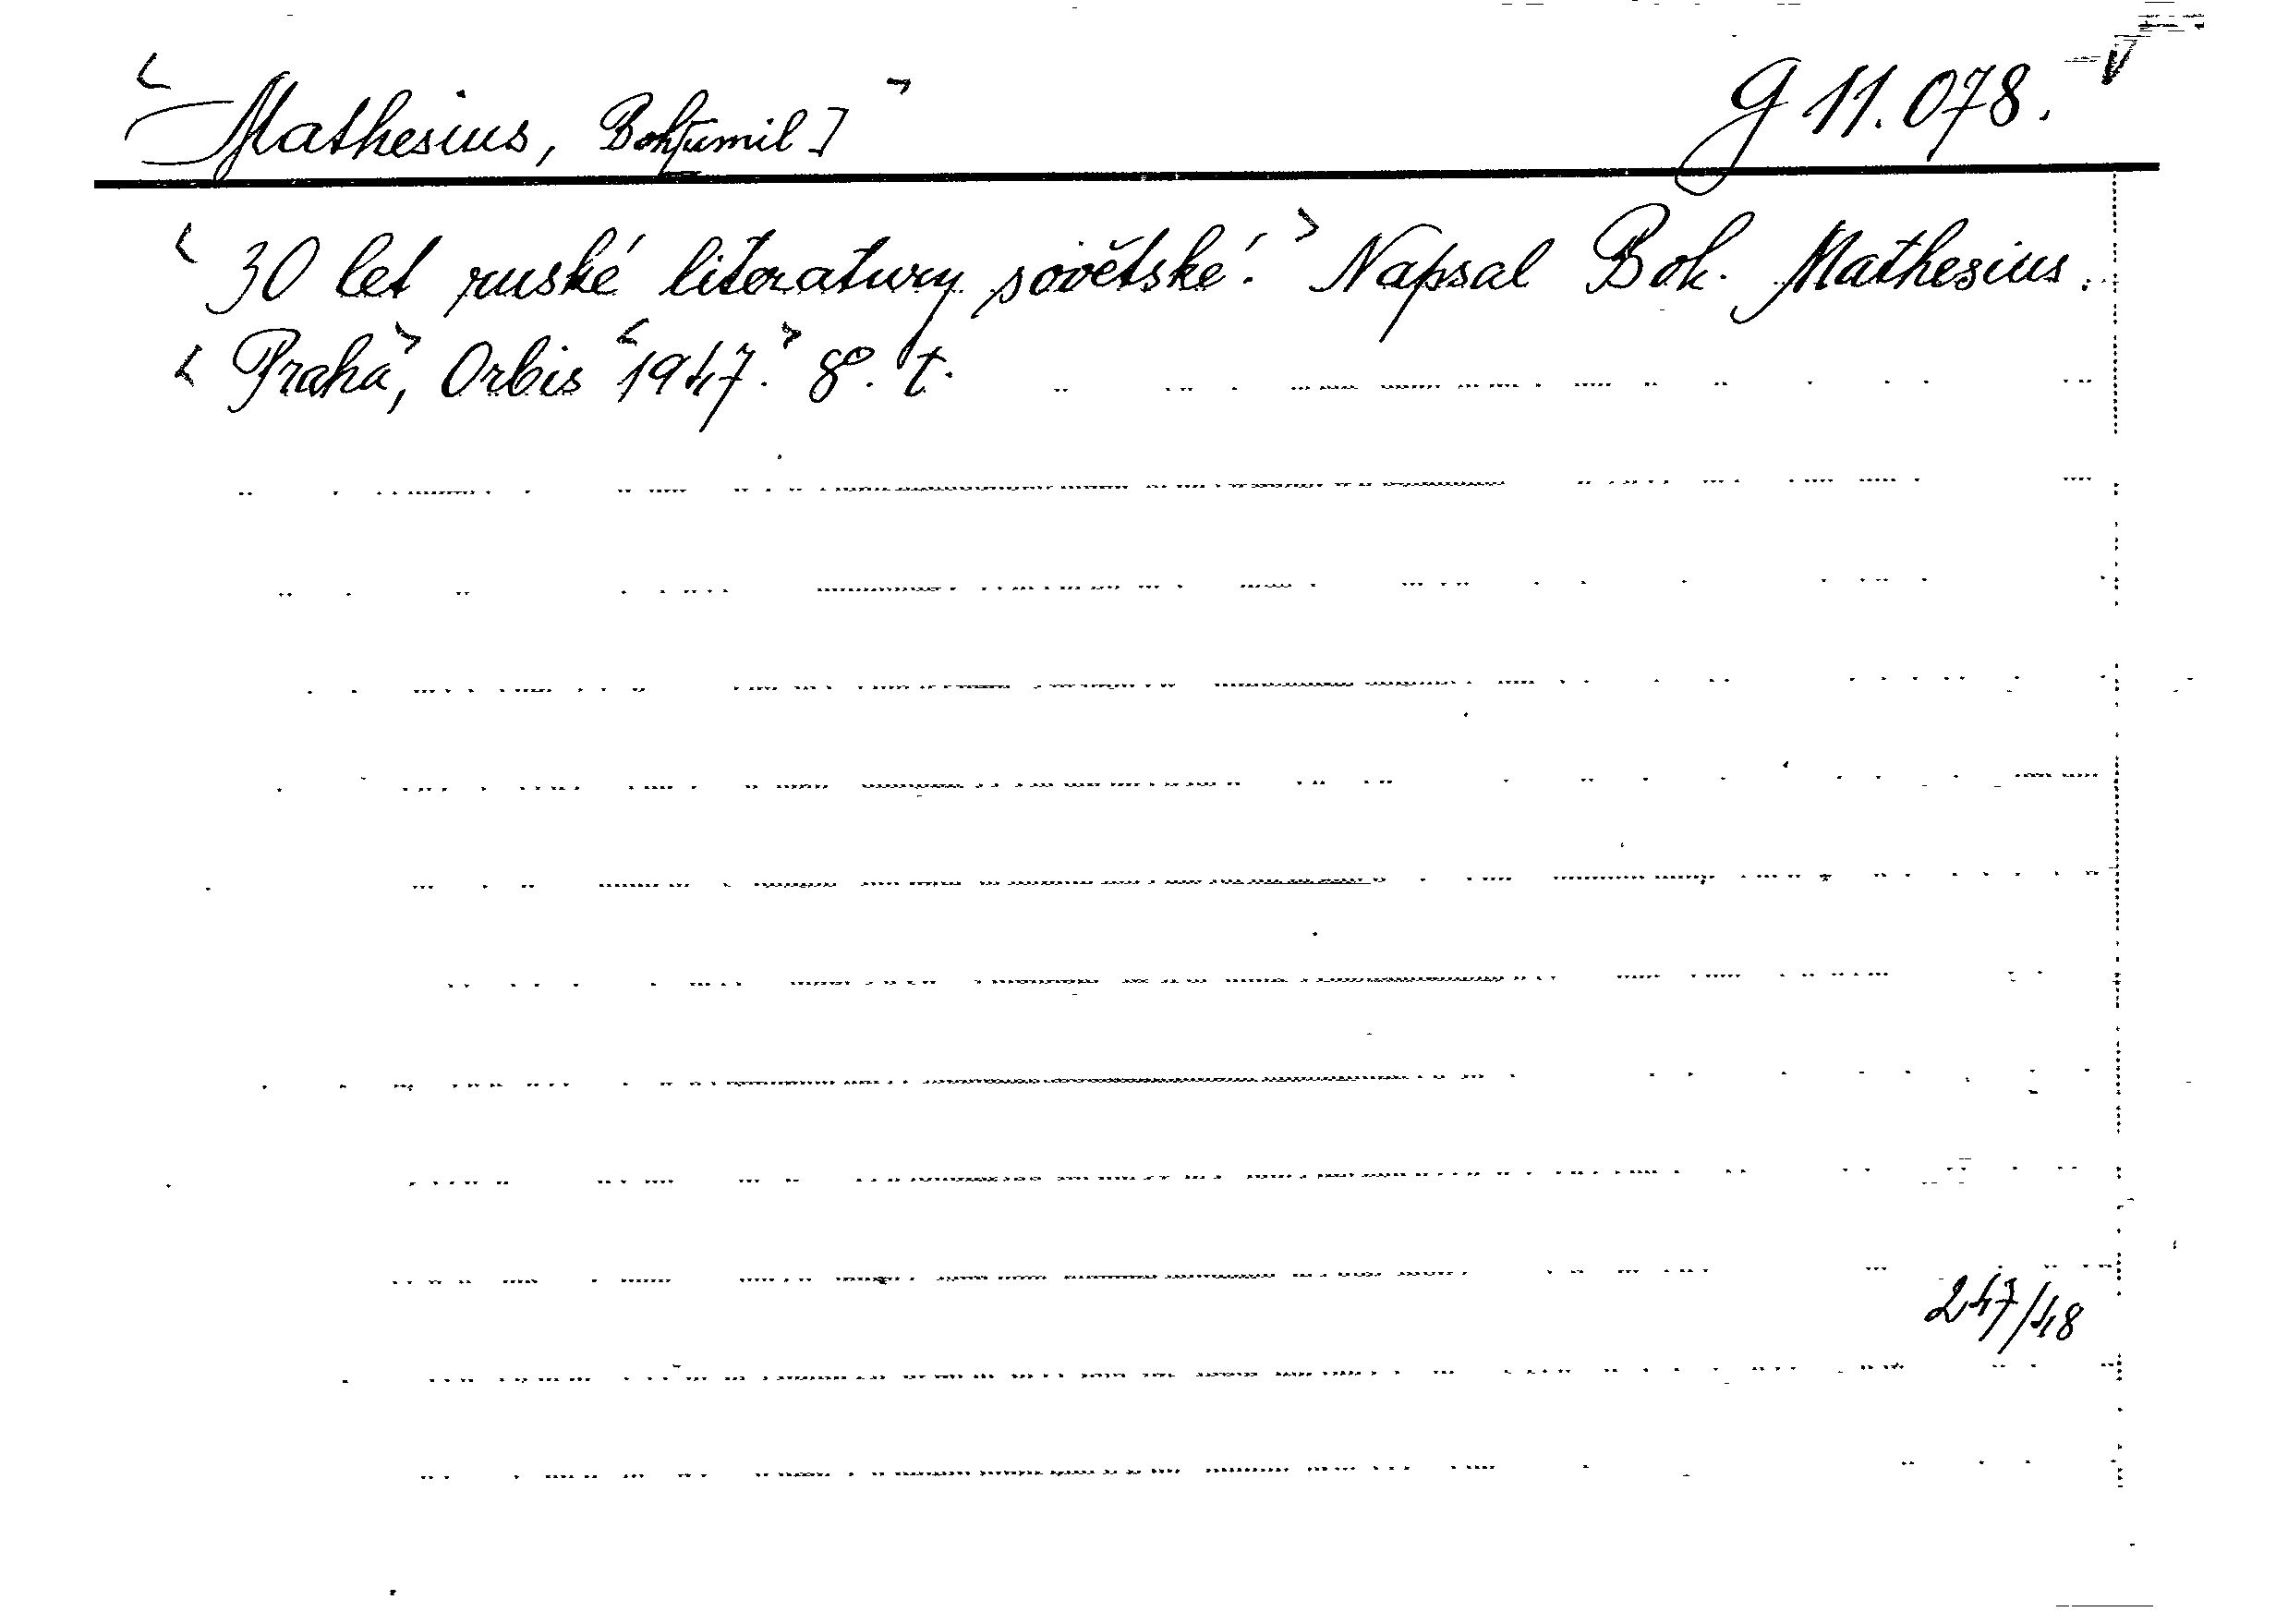 Mathesius, Boh[umil] G 11.078.
30 let ruské literatury sovětské. Napsal Boh. Mathesius.
Praha, Orbis 1947. 8°. t.
247/48